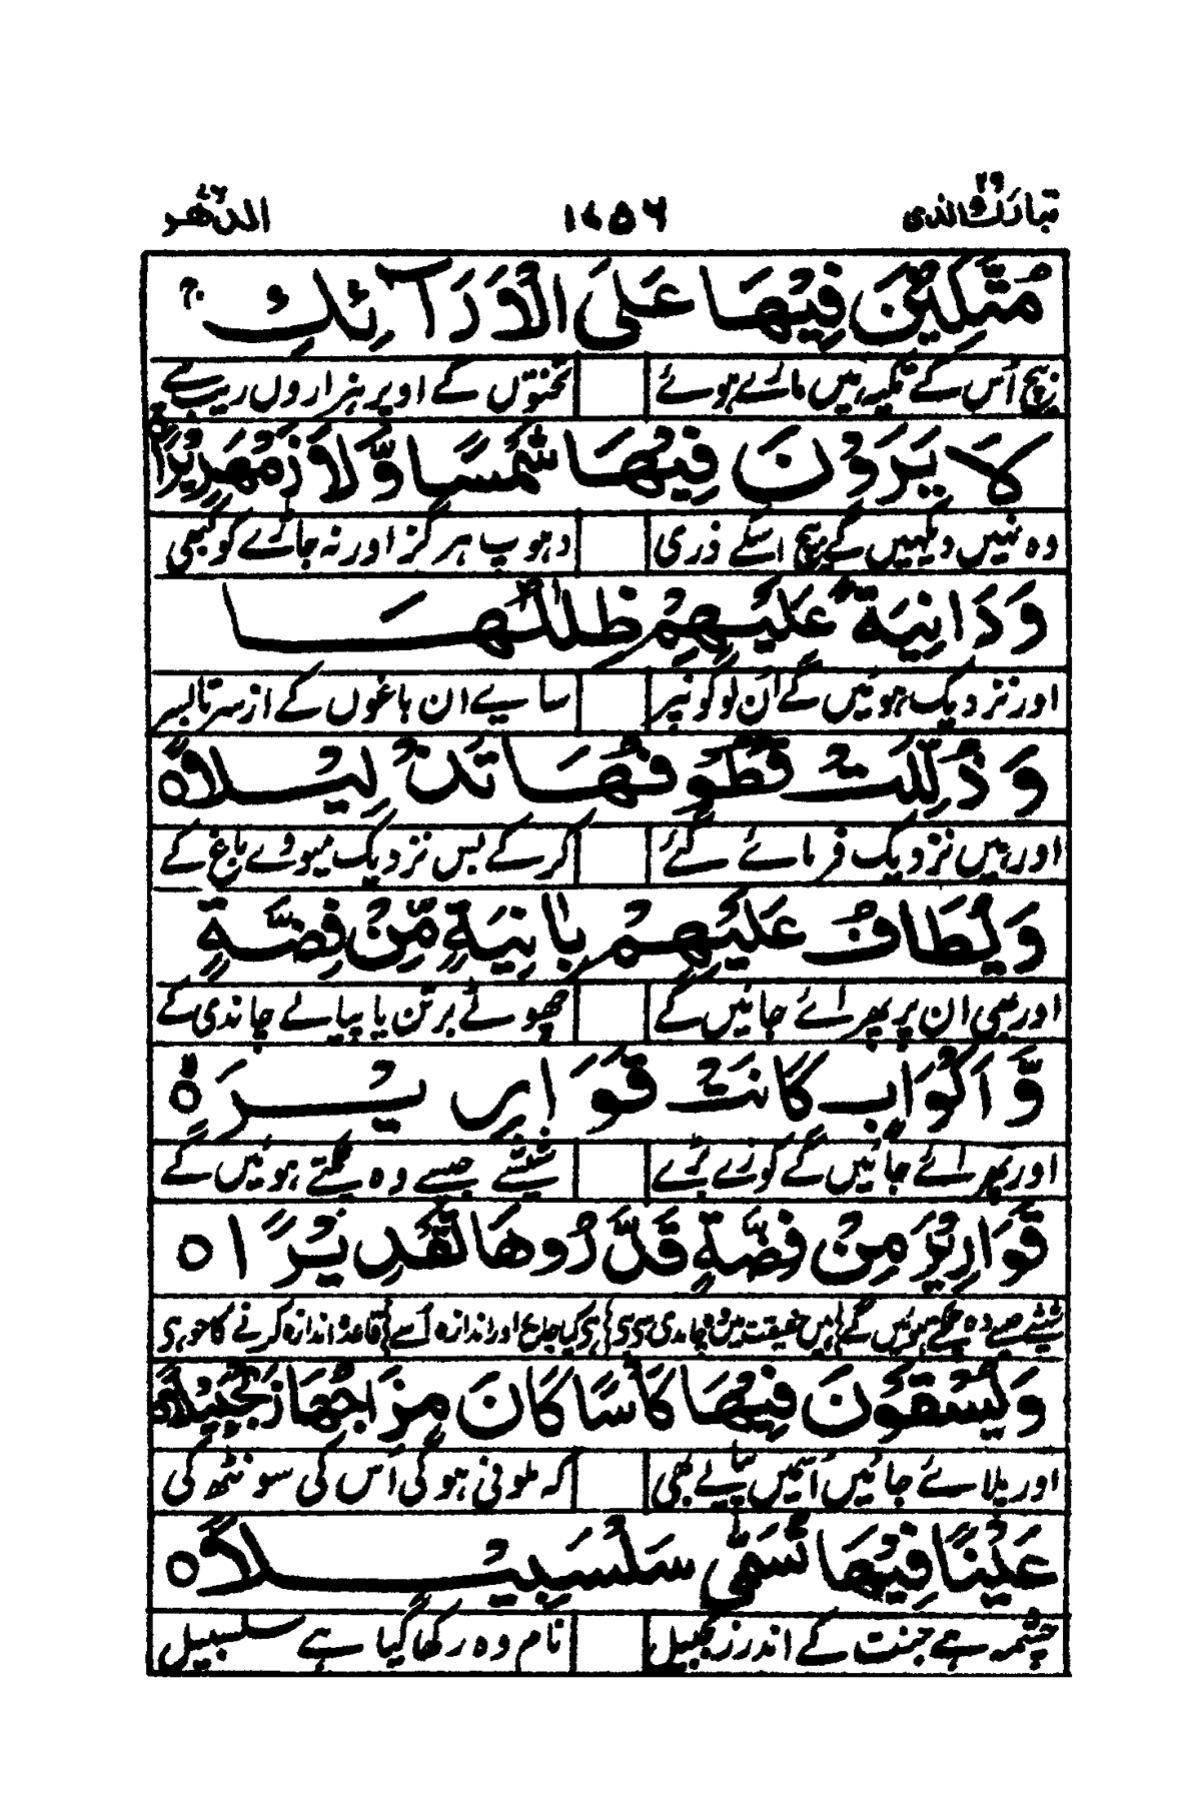 تبارك الذی ٢٩ ١٦٥٦ الدهر ٧٦
مُتَّكِئِينَ فِيهَا عَلَى الْأَرَآئِكِ ج
بیچ اُس کے تکیہ ہیں مارے ہوئے تختوں کے اوپر ہزاروں ریب سے
لَا يَرَوْنَ فِيهَا شَمْسًا وَّلَا زَمْهَرِيرًا
وہ نہیں دیکہیں گے بیچ اسکے ذری دہوپ ہرگز اور نہ جاڑے کو کبھی
وَدَانِيَةً عَلَيْهِمْ ظِلٰلُهَا
اور نزدیک ہوئیں گے اُن لوگونپر سایے ان باغوں کے از سر تا بسر
وَذُلِّلَتْ قُطُوفُهَا تَذْلِيلًا ٥
اور ہیں نزدیک فرمائے گئے کر کے بس نزدیک میوے باغ کے
وَيُطَافُ عَلَيْهِمْ بِاٰنِيَةٍ مِّنْ فِضَّةٍ
اور بھی ان پر پھرائے جائیں گے چھوٹے برتن یا پیالے چاندی کے
وَّاَكْوَابٍ كَانَتْ قَوَارِيرَا ٥
اور پھرائے جائیں گے کوزے بڑے شیشے جیسے وہ چمکتے ہوئیں گے
قَوَارِيْرَ مِنْ فِضَّةٍ قَدَّرُوهَا تَقْدِيْرًا ٥
شیشے جیسے وہ چمکے ہوئیں گے ہیں حقیقت میں وہ چاندی سی ہی کیا جاوے اور اندازہ اُسے قاعدہ اندازہ کرنے کا جو ہی
وَيُسْقَوْنَ فِيهَا كَأْسًا كَانَ مِزَاجُهَا زَنْجَبِيلًا
اور پلائے جائیں اُسمیں پیالے بھی کہ ملونی ہوگی اُس کی سونٹھ کی
عَيْنًا فِيْهَا تُسَمّٰى سَلْسَبِيْلًا ٥
چشمہ ہے جنت کے اندر زنجبیل نام وہ رکھا گیا ہے سلسبیل